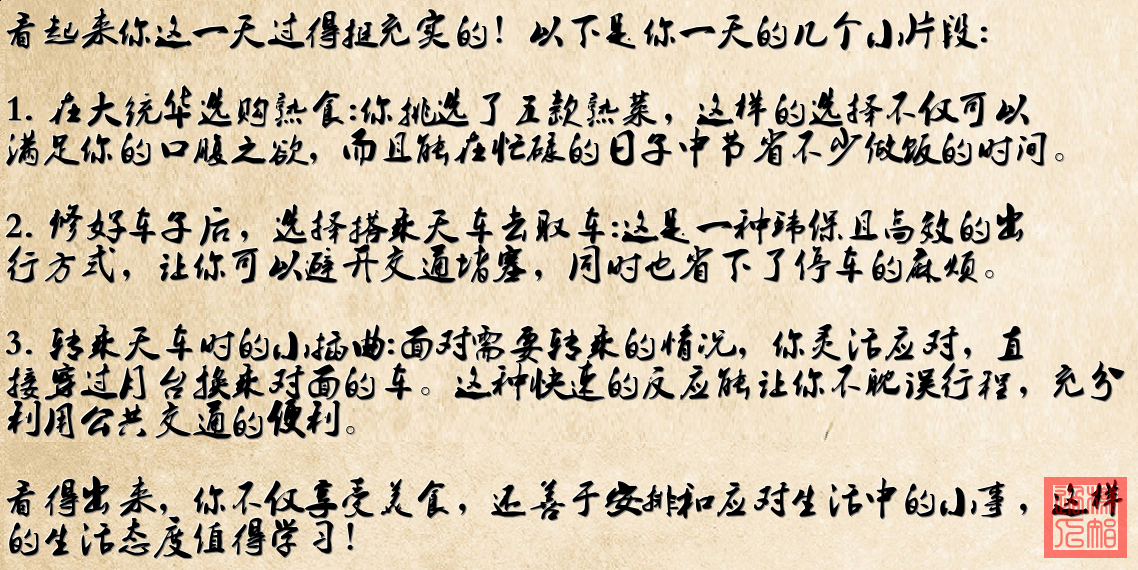 看起来你这一天过得挺充实的！以下是你一天的几个小片段：
1. 在大统华选购熟食:你挑选了五款熟菜，这样的选择不仅可以
满足你的口腹之欲，而且能在忙碌的日子中节省不少做饭的时间。
2. 修好车子后，选择搭乘天车去取车:这是一种环保且高效的出
行方式，让你可以避开交通堵塞，同时也省下了停车的麻烦。
3. 转乘天车时的小插曲:面对需要转乘的情况，你灵活应对，直
接穿过月台换乘对面的车。这种快速的反应能让你不耽误行程，充分
利用公共交通的便利。
看得出来，你不仅享受美食，还善于安排和应对生活中的小事，这样
的生活态度值得学习！